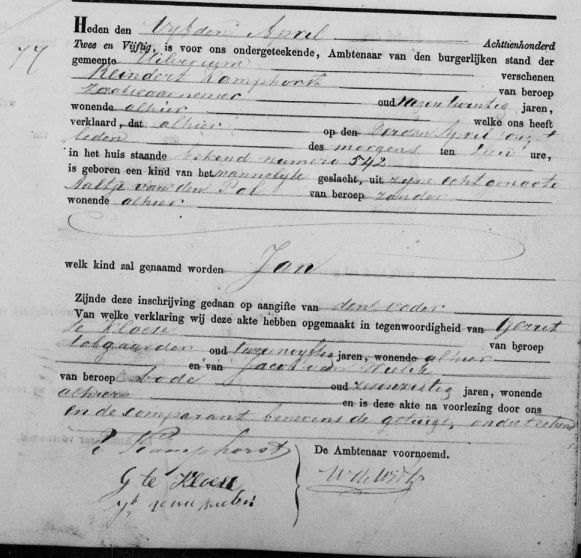 77
Heden den Vyfden April Achttienhonderd
Twee en Vijftig, is voor ons ondergeteekende, Ambtenaar van den burgerlijken stand der
gemeente Hilversum verschenen
Reindert Kamphorst van beroep
Zaakwaarnemer oud jaren,
wonende alhier welke ons heeft
verklaard, dat alhier op den Derden April
leden des morgens ten ure,
in het huis staande bekend numero 542
is geboren een kind van het mannelyk geslacht, uit zyne echtgenoote
Aaltje van den Pol van beroep zonder
wonende alhier
welk kind zal genaamd worden Jan
Zijnde deze inschrijving gedaan op aangifte van den vader
Van welke verklaring wij deze akte hebben opgemaakt in tegenwoordigheid van Gerrit
te Kloese van beroep
oud jaren, wonende alhier
en van Jacob van
van beroep bode oud zesenzestig jaren, wonende
alhier en is deze akte na voorlezing door ons
en de comparant benevens de getuigen onderteekend
R Kamphorst
De Ambtenaar voornoemd.
G te Kloese
W de Wit